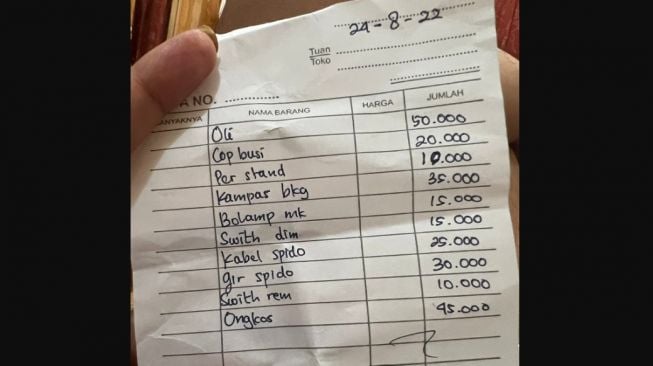 24-8-22
Tuan
Toko
A NO.
ANYAKNYA NAMA BARANG HARGA JUMLAH
Oli 50.000
Cop busi 20.000
Per stand 10.000
Kampas bkg 35.000
Bolamp mk 15.000
Swith dim 15.000
Kabel spido 25.000
gir spido 30.000
Swith rem 10.000
Ongkos 45.000